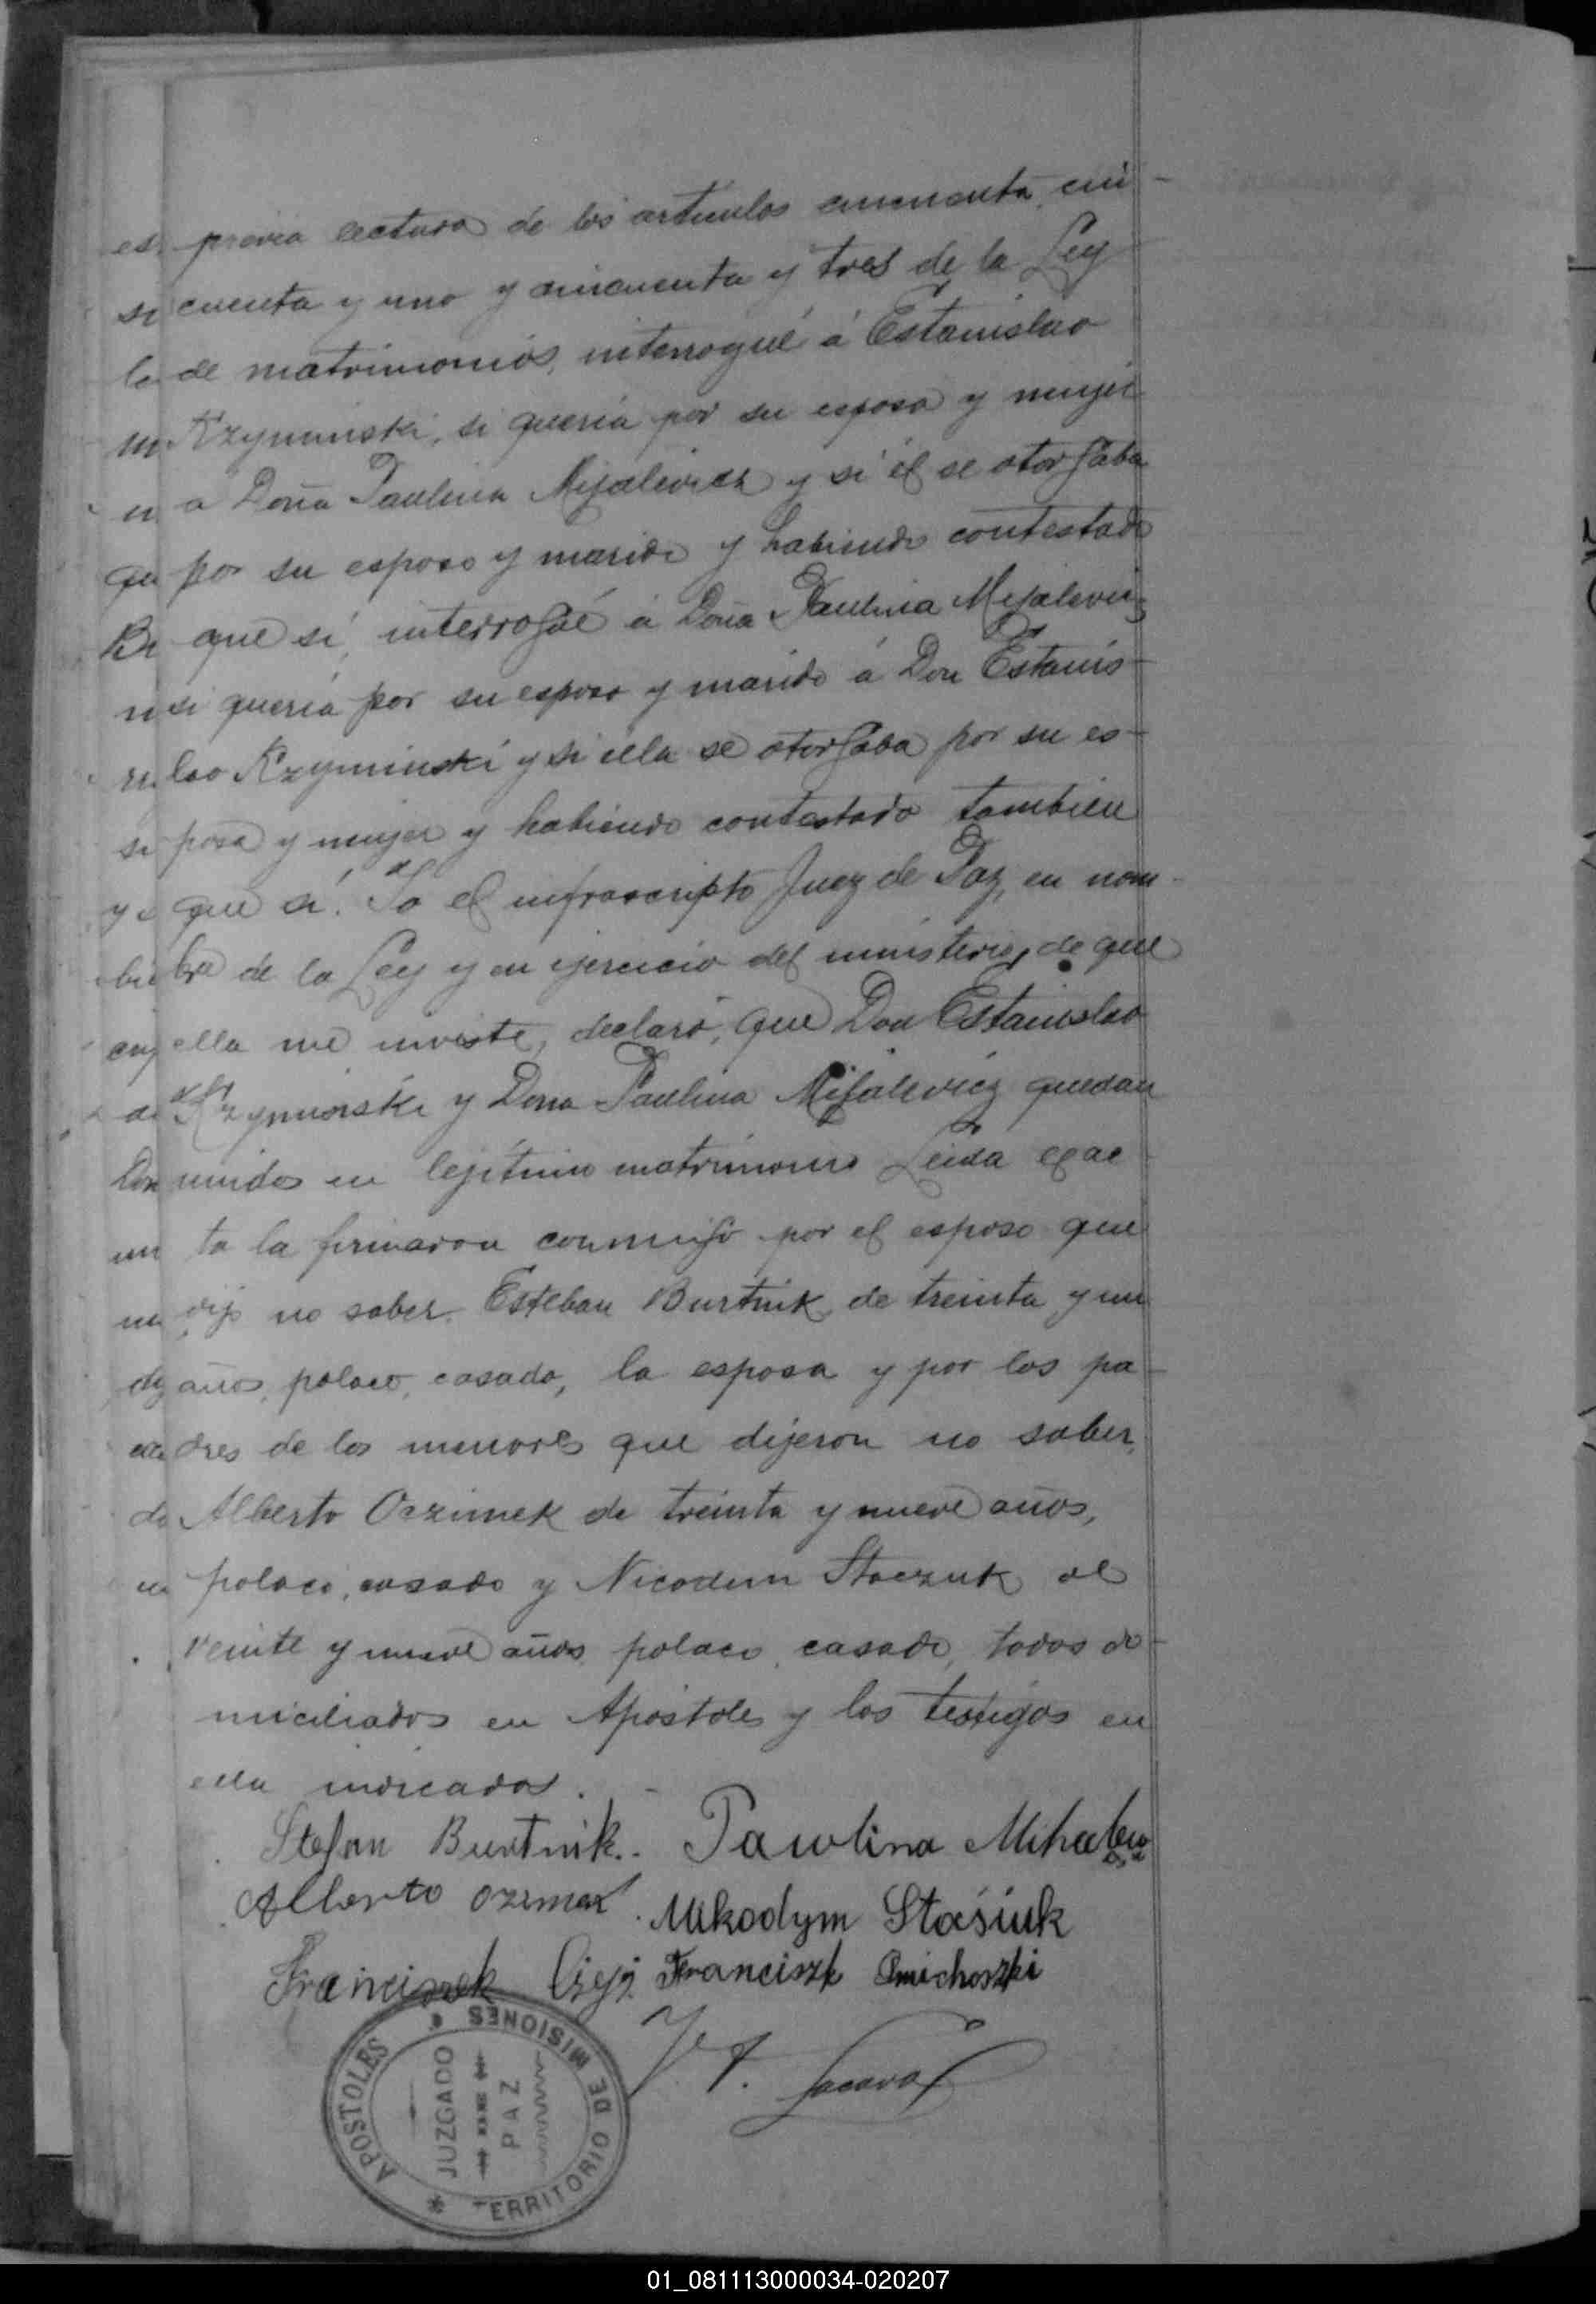 previa lectura de los articulos cincuenta, cin-
cuenta y uno y cincuenta y tres de la Ley
de matrimonios, interrogué á Estanislao
Krzyminski, si queria por su esposa y mujer
a Doña Paulina Mijalevicz y si él se otorgaba
por su esposo y marido y habiendo contestado
que sí, interrogué á Doña Paulina Mijalevicz
si queria por su esposo y marido á Don Estanis-
lao Krzyminski y si ella se otorgaba por su es-
posa y mujer y habiendo contestado tambien
que sí. Yo el infrascripto Juez de Paz, en nom-
bre de la Ley y en ejercicio del ministerio, de que
ella me inviste, declaró, que Don Estanislao
Krzyminski y Doña Paulina Mijalevicz quedan
unidos en lejítimo matrimonio Leida el ac
ta la firmaron conmigo por el esposo que
dijo no saber Esteban Burtnik, de treinta y un
años, polaco, casado, la esposa y por los pa-
dres de los menores que dijeron no saber,
Alberto Oczimek de treinta y nueve años,
polaco, casado y Nicodem Staczuk de
veinte y nueve años, polaco, casado, todos do-
miciliados en Apóstoles y los testigos en
ella indicados.
Stefan Burtnik. Pawlina Mihalew
Alberto Ozimek Mikodym Stasiuk
Franciszek Franciszk
APOSTOLES * TERRITORIO DE MISIONES
JUZGADO
PAZ
01_081113000034-020207